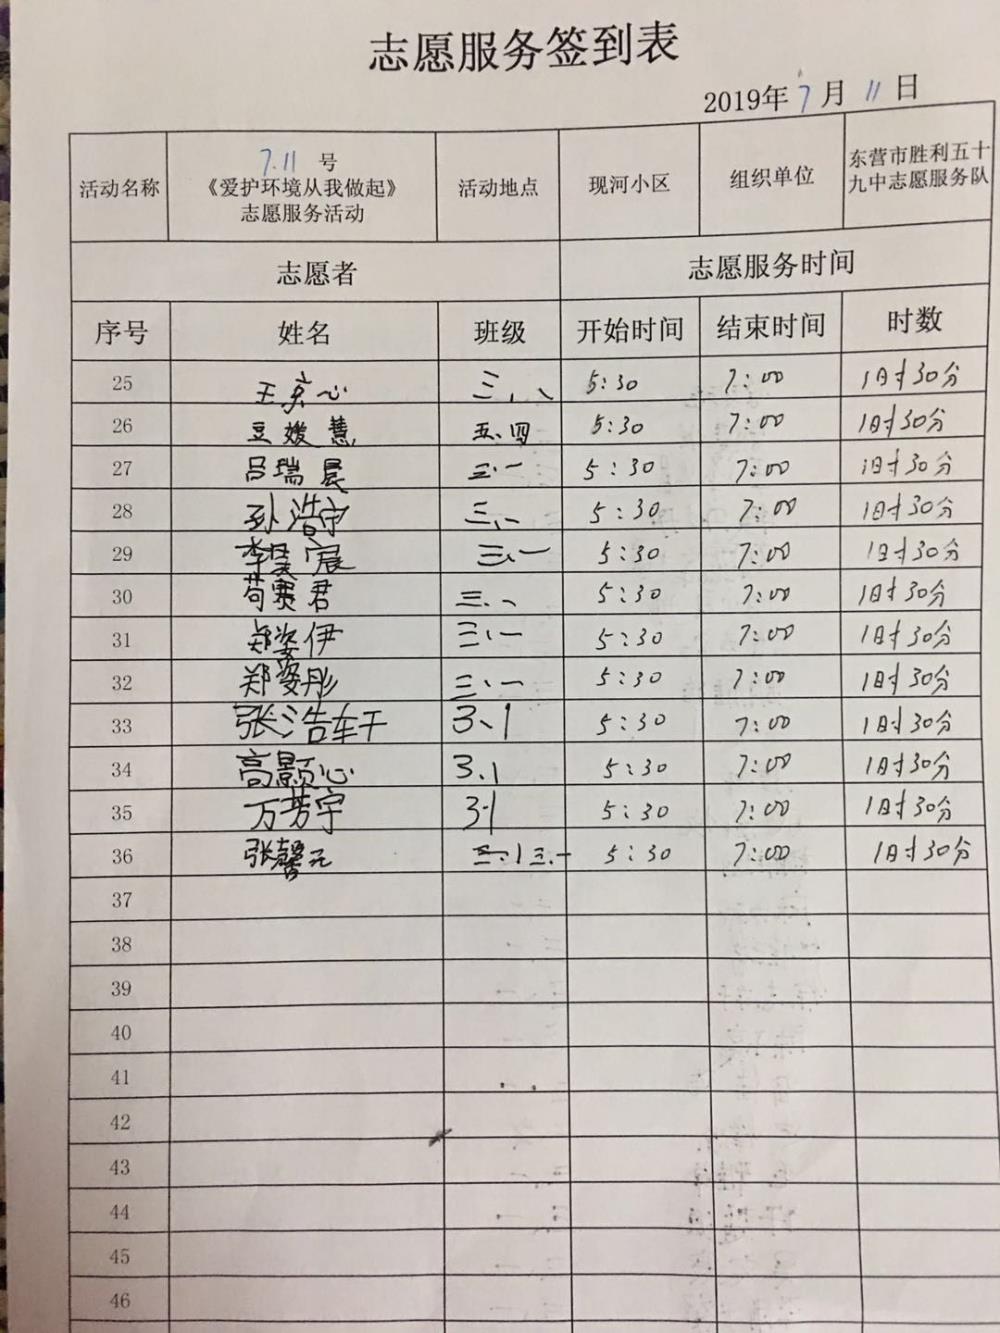 志愿服务签到表
2019年 7 月 11 日
活动名称 7.11 号《爱护环境从我做起》志愿服务活动 活动地点 现河小区 组织单位 东营市胜利五十九中志愿服务队
志愿者 志愿服务时间
序号 姓名 班级 开始时间 结束时间 时数
25 王京心 三、八 5:30 7:00 1时30分
26 豆嫂慧 五、四 5:30 7:00 1时30分
27 吕瑞晨 三、一 5:30 7:00 1时30分
28 孙浩宇 三、一 5:30 7:00 1时30分
29 李昊宸 三、一 5:30 7:00 1时30分
30 苟赛君 三、一 5:30 7:00 1时30分
31 郑姿伊 三、一 5:30 7:00 1时30分
32 郑姿彤 三、一 5:30 7:00 1时30分
33 张浩轩 3、1 5:30 7:00 1时30分
34 高颢心 3、1 5:30 7:00 1时30分
35 万芳宇 3、1 5:30 7:00 1时30分
36 张馨元 三、一 5:30 7:00 1时30分
37
38
39
40
41
42
43
44
45
46